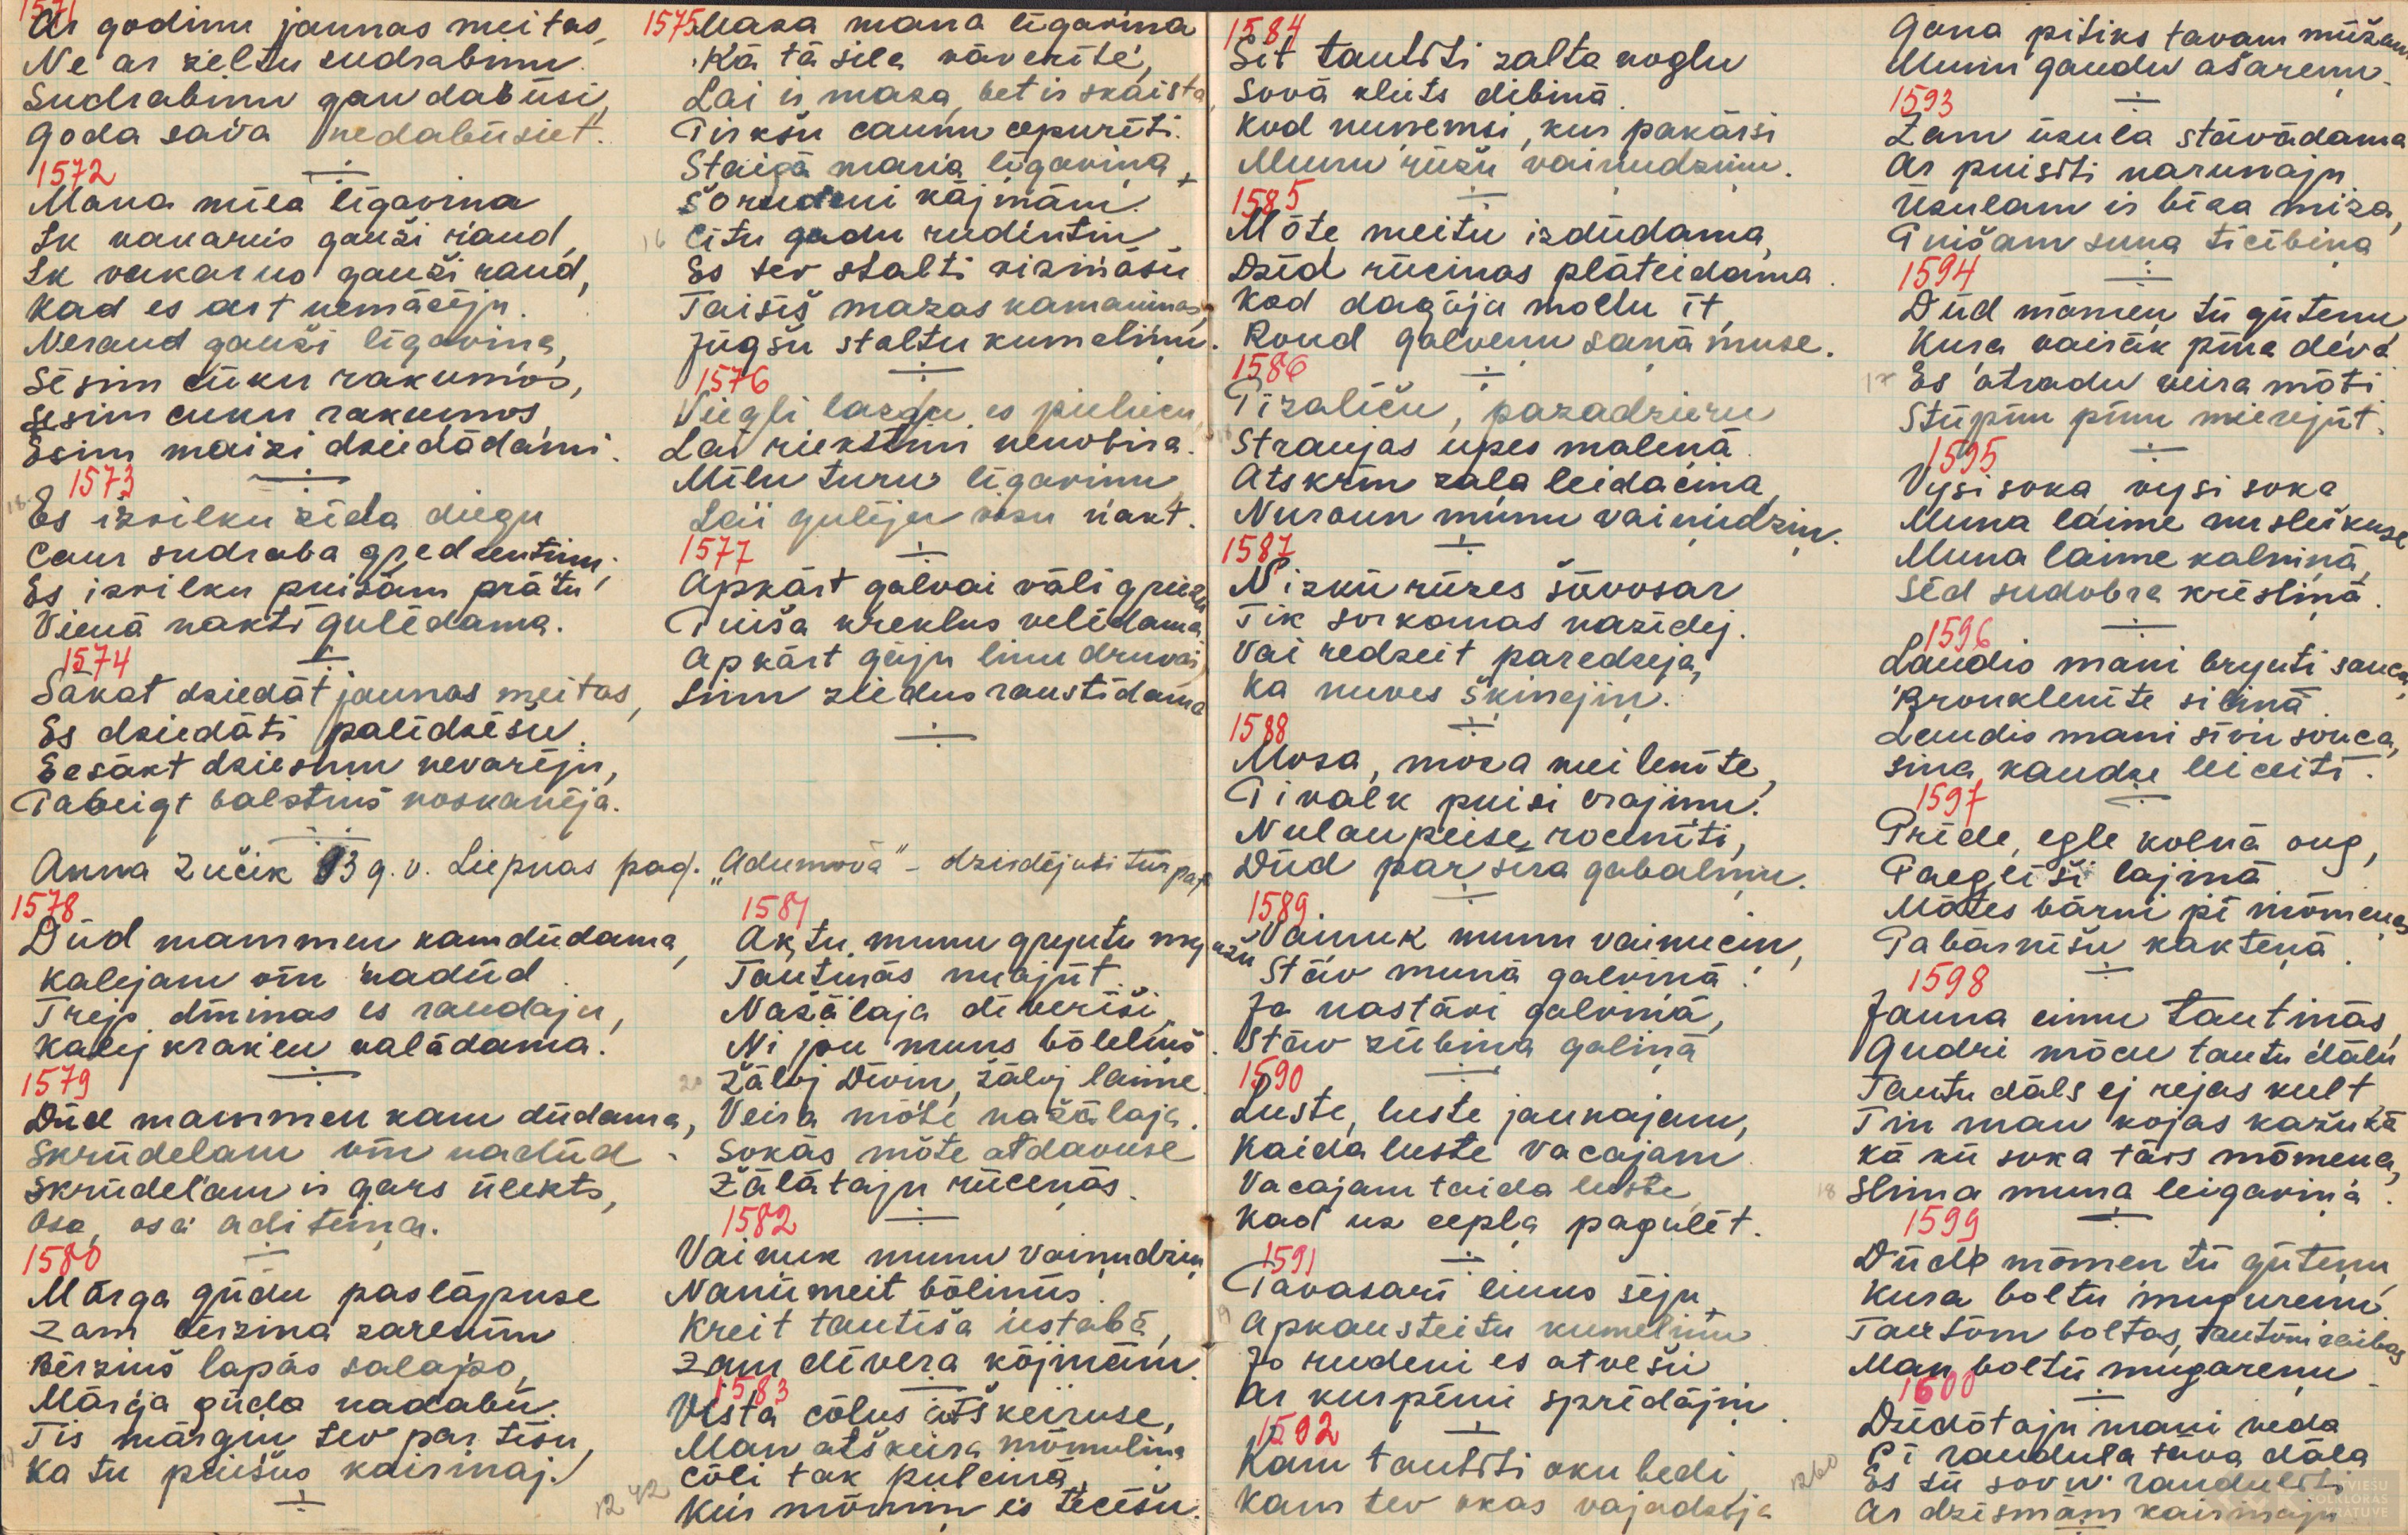 1571
Ar godinu jaunas meitas,
Ne ar zeltu sudrabinu.
Sudrabinu gan dabūsi,
Goda sava nedabūsiet.
1572
Mana mīla līgaviņa
Ik vakarus gauži raud,
Ik vakarus gauži raud,
Kad es art nemācēju.
Neraud gauži līgaviņa,
Sēsim cūku rakumos,
Sēsim cuku rakumos,
Ēsim maizi dziedādami.
1573
Es izvilku zīda diegu
Caur sudraba gredzentiņu;
Es izvilku puišam prātu
Vienā naktī gulēdama.
1574
Sākat dziedāt jaunas meitas,
Es dziedāti palīdzēšu.
Eesākt dziesmu nevarēju,
Pabeigt balstiņš noskanēja.
Anna Zučik 83 g. v. Liepnas pag. "Adumovā" - dziedējusi tūr pag.
1575
Maza mana līgaviņa
Kā tā sila vāverīte,
Lai ir maza, bet ir skaista,
Pirkšu caunu cepurīti.
Staigā mana līgaviņa
Šorudeni kājiņām.
Citu gadu rudintiņ
Es tev stalti vizināšu
Taisīš mazas kamaniņas,
Jūgšu staltu kumeliņu.
1576
Viegli lazdu es pieliecu,
Lai riekstiņi nenobira.
Mīlu turu līgaviņu
Lai gulēja visu nakt.
1577
Apkārt galvai vāli griezu
Puiša kreklus velēdama.
Apkārt gāju linu druvai,
Linu ziedus raustīdama
1578
Dūd mammeņ kam dūdama,
Kalējam viņ nadūd.
Trejs dīniņas es raudāju,
Kalēj krakļu valādama.
1579
Dūd mammeņ kam dūdama,
Skrūdelam viņ nadūd.
Skrūdeļam ir gars ūlekts,
Osa, osa aditeiņa.
1580
Mārga gūdu paslāpuse
Zam bērziņa zareņim
Bērziņš lapās salapo,
Mārga gūda nadabū.
Tis mārgiņ tev par tēsu,
Ka tu puišus kairinaj.
1581
Ak, tu munu gryutu myužu
Tautiņās nuojūt.
Nažālaja diveriši,
Ni jau muns bōleliņš.
Žāloj Diviņ, žāloj laime
Veira mōte nažālaja.
Sokās mōte atdavuse
Žālātaju rūceņās.
1582
Vainuk munu vainudziņ
Nanūmeit bōliņus.
Kreit tautiša ūstabā,
Zam dīvera kōjiņām.
1583
Vista cōlus atškeiruse,
Man atškeira mōmuliņa
Cōli tak puleiņā,
Kur mōmiņ es tecēšu.
1584
Sit tautīti zalta noglu
Sovā klēts dibiņā.
Kod nuņemsi, kur pakārsi
Munu rūžu vainudziņu.
1585
Mōte meitu izdūdama,
Dzīd rūciņas plāteidama.
Kod dagāja mollu īt,
Roud galveņu sanāmuse.
1586
Pizaliču, pazadzieru
Straujas upes maleņā
Atskrin zala leidaciņa,
Nuraun munu vaiņudziņ.
1587
Nizkū rūzes šūvosar
Tik sorkanas nazīdej.
Vai redzeit paredzēja,
Ka nuves škinējiņ.
1588
Mosa, moza meilenīte,
Pivalk puisi crajiņu.
Nulaupeise roceniti,
Dūd par sira gabaliņu.
1589.
Vainuk munu vainuciņ,
Stāv munā galviņā!
Ja nastāvi galviņā,
Stāv zūbiņa galiņā
1590
Luste, luste jaunajam,
Kaida luste vacajam
Vacajam taida luste,
Kad uz cepļa pagulēt.
1591
Pavasari linus sēju
Apkausteitu kumeliņu
Jo rudeni es atvešū
Ar kurpēmi spridājiņ.
1592
Kam tautīti aku bedi,
Kam tev akas vajadzēja
Gona pitiks tavam mūžam
Munu gaudu ašareņu.
1593
Zam ūzula stāvādama
Ar puisīti narunaju
Ūzulam ir bīza miza,
Puišam suņa ticībiņa
1594
Dūd mōmeņ tū gūteņu
Kura vairāk pīna devā
Es atradu veira mōti
Stūpiņu pīnu mierejūt.
1595
Vysi soka, vysi soka
Muna laime nusleikuse
Muna laime kalniņā,
Sēd sudobra krēsliņā.
1596
Laudis mani bryuti sauca,
Bronklenite siliņā.
Laudis mani sivu souca,
sina kaudze leiceiti.
1597
Pride, egle kolnā oug,
Paegliši lajiņā
Mōtes bārni pi mōmeņas
Pabārnīšu kakteņā.
1598
Jauna eimu tautiņās,
Gudri mōcu tautu dālu
Tautu dāls ej rejas kult,
Tin man kojas kažukā
Kā nū soka tārs mōmeņa,
Slima muna leigaviņa.
1599
Dūde mōmeņ tū gūteņu
Kura boltu mugureņu
Tautōm boltas, tautōm raibas
Man boltū mugareņu
1600
Dūdōtaju mani veda
Pi raudula tava dāla
Es tū sovu rauduliti
Ar dzismām kairinaju